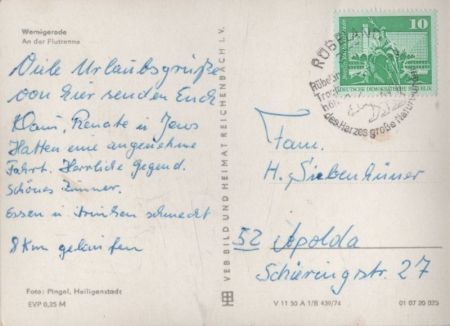 Wernigerode
An der Flutrenne
Viele Urlaubsgrüße
von hier senden Euch
Klaus, Renate u. Jens
Hatten eine angenehme
Fahrt. Herrliche Gegend.
Schönes Zimmer.
Essen u. Trinken schmeckt
8 Km gelaufen
Foto: Pingel, Heiligenstadt
EVP 0,25 M
VEB BILD UND HEIMAT REICHENBACH I. V.
10
DEUTSCHE DEMOKRATISCHE REPUBLIK
RÜBELAND
des Harzes große Naturwunder
Fam.
H. Siebenhüner
52 Apolda
Schieringstr. 27
V 11 50 A 1/B 439/74
01 07 20 025